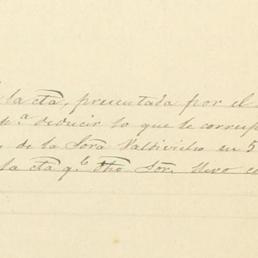 la cta, presentada por el
p.a deducir lo que le corresp
de la Sora Valdivielso en 5
la cta q.e dho Sor. llevo c